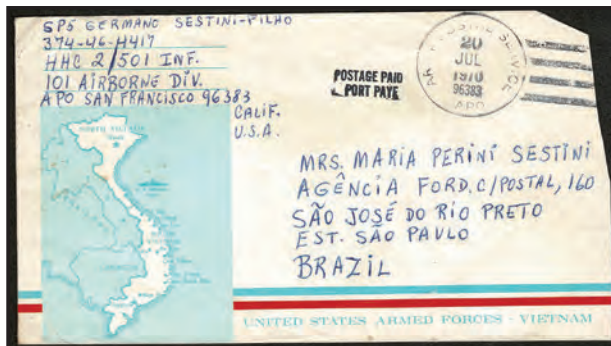 SP5 GERMANO SESTINI-FILHO
374-46-4417
HHC 2/501 INF.
101 AIRBORNE DIV.
APO SAN FRANCISCO 96383
CALIF.
U.S.A.
POSTAGE PAID
PORT PAYE
POSTAL SERVICE
20
JUL
1970
96383
APO
NORTH VIETNAM
MRS. MARIA PERINI SESTINI
AGÊNCIA FORD. C/POSTAL, 160
SÃO JOSÉ DO RIO PRETO
EST. SÃO PAULO
BRAZIL
UNITED STATES ARMED FORCES - VIETNAM